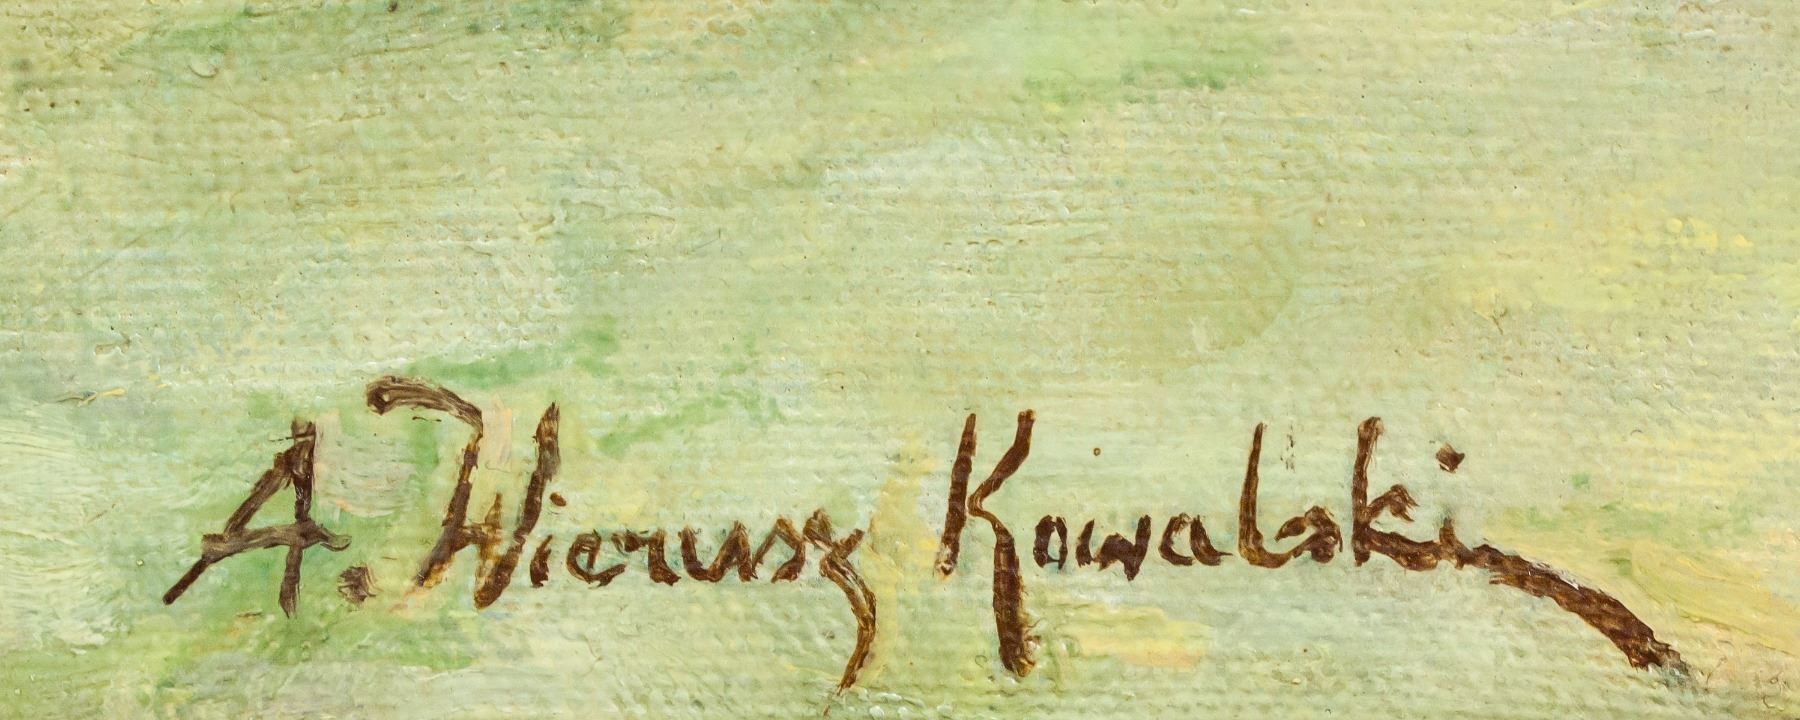 A. Wierusz Kowalski